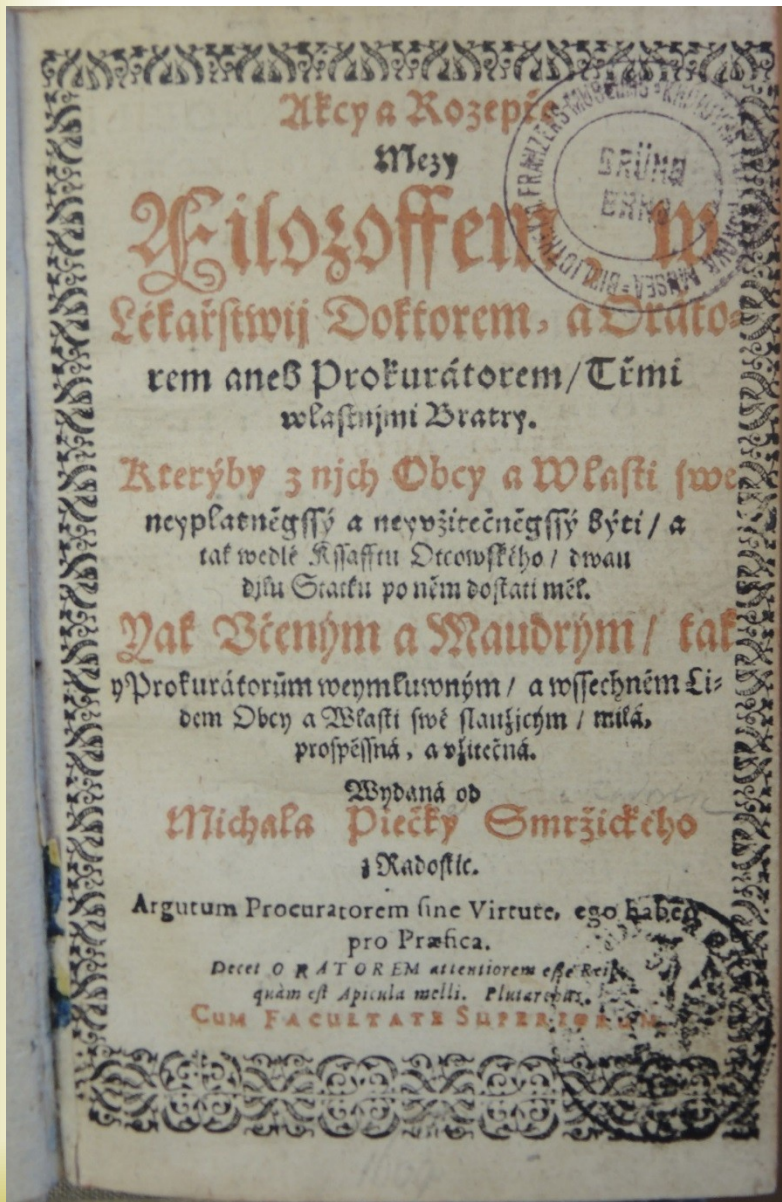 Akcy a Rozepře
Mezy
Filozoffem, w
Lékařstwij Doktorem, a Oráto-
rem aneb Prokurátorem / Třmi
wlastnjmi Bratry.
Kterýby z njch Obcy a Wlasti swé
neyplatněgssý a neyvžitečněgssý býti / a
tak wedlé Kssafftu Otcowského / dwau
djlu Statku po něm dostati měl.
Yak Včeným a Maudrým / tak
y Prokurátorům weymluwným / a wssechněm Li-
dem Obcy a Wlasti swé slaužicým / milá,
prospěssná, a vžitečná.
Wydaná od
Michala Piečky Smržického
z Radostic.
Argutum Procuratorem sine Virtute, ego habeo
pro Præfica.
Decet ORATOREM attentiorem esse Reip.
quàm est Apicula melli. Plutarchus.
CUM FACULTATE SUPERIORUM
FRANZENS MUSEUMS
GRÜNO
BRNO